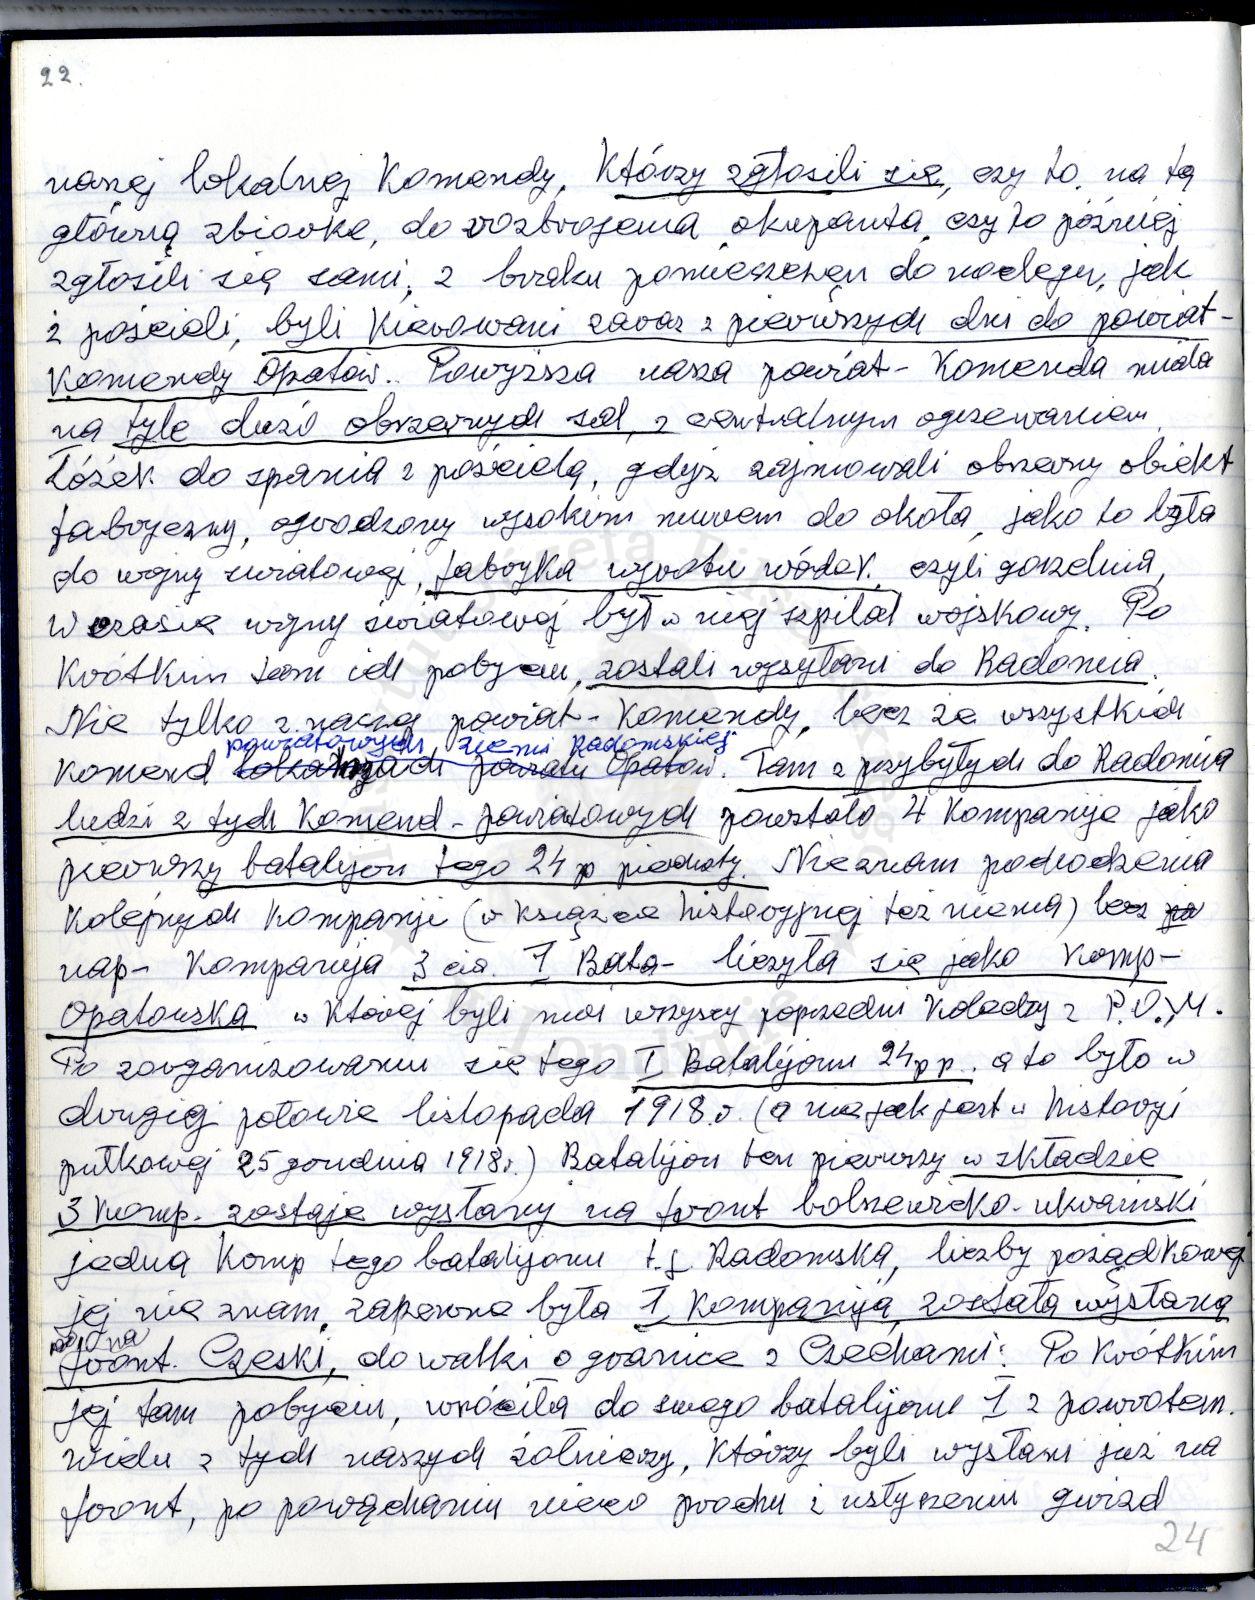 22.
naszej lokalnej Komendy, Którzy zgłosili się, czy to, na tą
główną zbiorkę, do rozbrojenia okupanta, czy to później
zgłosili się sami, z braku pomieszczeń do noclegu, jak
i pościeli, byli Kierowani zaraz z pierwszych dni do powiat-
Komendy Opatów.. Powyższa nasza powiat- Komenda miała
na tyle dużo obszernych sal, z centralnym ogrzewaniem
Łóżek do spania z pościelą, gdyż zajmowali obszerny obiekt
fabryczny, ogrodzony wysokim murem do okoła, jako to była
do wojny światowej, fabryka wyrobu wódek, czyli gorzelnia,
W czasie wojny światowej był w niej szpital wojskowy. Po
Krótkim tam ich pobyciu, zostali wysyłani do Radomia.
Nie tylko z naszej powiat- Komendy, lecz ze wszystkich
powiatowych, ziemi Radomskiej
Komend lokalnych powiatu Opatów. Tam z przybyłych do Radomia
ludzi z tych Komend- powiatowych powstało 4 Kompanije jako
pierwszy batalijon tego 24 p piechoty. Nie znam pochodzenia
Kolejnych Kompanji (w Książce historyjnej też niema) lecz
nap- Kompanija 3 cia. I Bata- liczyła się jako Komp-
Opatowska w Której byli moi wszyscy poprzedni Koledzy z P.O.W.
Po zorganizowaniu się tego I Batalijonu 24 p p. a to było w
drugiej połowie listopada 1918.r. (a nie jak jest w historyi
pułkowej 25 grudnia 1918r.) Batalijon ten pierwszy w składzie
3 Komp. zostaje wysłany na front bolszewicko-ukraiński
jedna Komp tego batalijonu t.j. Radomska, liczby porządkowej
jej nie znam, zapewne była 1, Kompanija, została wysłaną
na
front. Czeski, do walki o granice z Czechami. Po Krótkim
jej tam pobyciu, wróciła do swego batalijonu I z powrotem.
Wielu z tych naszych żołnierzy, Którzy byli wysłani już na
front, po powąchaniu nieco prochu i usłyszeniu gwizd
24